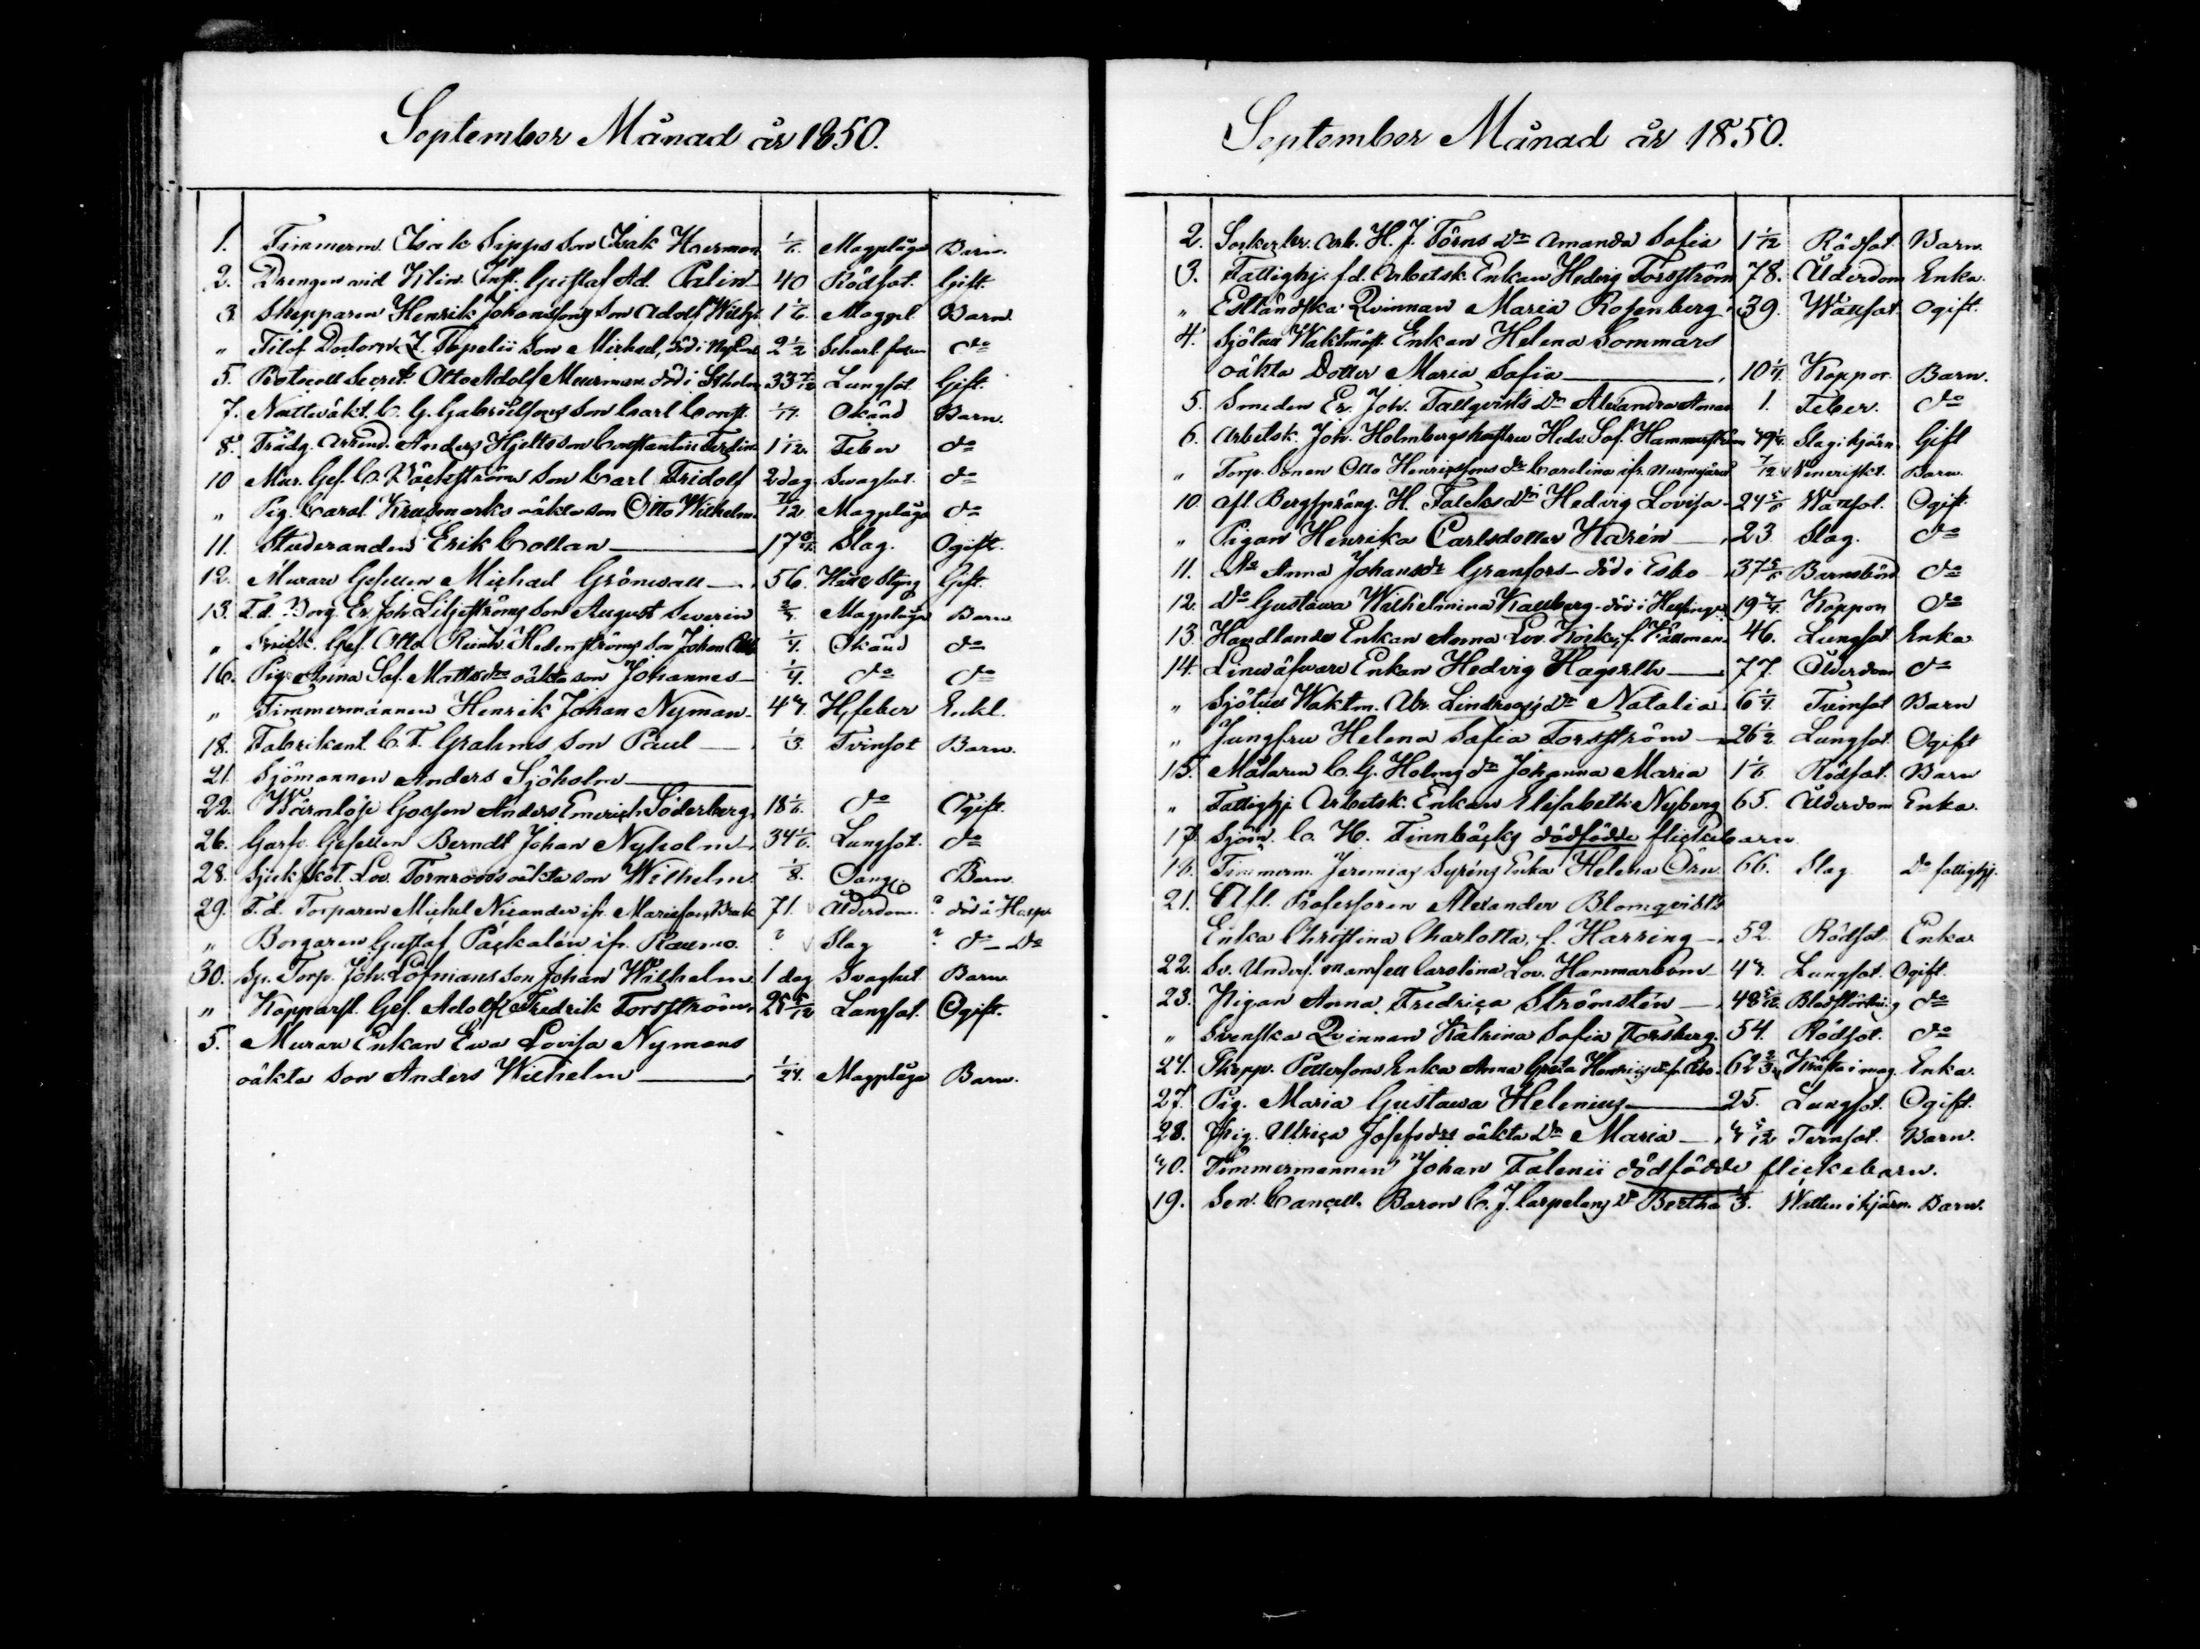 September Månad år 1850.
1. Timmerm. Isak Sipps Son Isak Herman 1/6. Magplåga Barn.
2. Drengen vid Klin. Inst. Gustaf Ad. Palin 40 Rödsot. Gift.
3 Skepparen Henrik Johanssons Son Adolf Wilh. 1 1/6. Magpl. Barn.
" Filos. Doctorn Z. Topelii Son Michael, död i 2 1/2 Scharl. feber do
5. Protocoll Secret. Otto Adolf Meurman död i Stholm 33 Lungsot Gift.
7. Nattväkt. C. G. Gabrielssons Son Carl Const. Okänd Barn.
8. Trädg. Arrend. Anders Hjelts son Constantin Ferdin. 1 1/12. Feber do
10 Mur. Ges. C. Son Carl Fridolf 2 dag Svaghet. do
" Pig. Carol. Krusmarks oäkta son Otto Wilhelm. 7/12 Magplåga do
11. Studeranden Erik Collan 17 Slag. Ogift.
12. Murare Gesellen Michael Grönwall 56. Håll o Styng Gift.
13. F.d. Borg. Er. Joh. Liljeströms Son August Severin Magplåga Barn
" Snick. Ges. Otto Reinh. Hedenströms Son Johan 1/4. Okänd do
16. Pig. Anna Sof. Mattsdrs oäkta son Johannes 1/4. do do
" Timmermannen Henrik Johan Nyman 44. H. feber Enkl.
18. Fabrikant. C. T. Grahms Son Paul 1/3 Tvinsot Barn.
21. Sjömannen Anders Sjöholm
22. Wärnlöse Gossen Anders Emerich Söderberg 18 1/6. do Ogift.
26. Garfv. Gesellen Berndt Johan Nyholm 34 1/6. Lungsot. do
28. Sjuksköt. Lov. Törnroos oäkta son Wilhelm. 1/8. Barn.
29. F.d. Torparen Michel Nicander ifr. Mariefors Bruk 71. Ålderdom. ? död å Hosp.
" Borgaren Gustaf Packalén ifr. Raumo. ? Slag ? do do
30. Sp. Torp. Joh. Löfmans son Johan Wilhelm 1 dag Svaghet. Barn
" Kopparsl. Ges. Adolf Fredrik Forsström. 25 5/12 Lungsot. Ogift.
5. Murare Enkan Ewa Lovisa Nymans
oäkta son Anders Wilhelm 1/24. Magplåga Barn.
September Månad år 1850.
2. Sockerbr. Arb. H. J. Törns dr Amanda Sofia 1 1/12 Rödsot. Barn.
3. Fattighj. f.d. Arbetsk. Enkan Hedvig Forsström 78. Ålderdom Enka.
" Estländska Qvinnan Maria Rosenberg 39. Wattsot. Ogift.
4. Sjötull Waktmäst. Enkan Helena Sommars
oäkta Dotter Maria Sofia 10 1/4. Koppor Barn.
5. Smeden Er. Joh. Tallqvists dr Alexandra 1. Feber. do
6. Arbetsk. Joh. Holmbergs hustru Hedv. Sof. Hammarström 49 1/4. Slag i hjärn. Gift
" Torp. Sonen Otto Henrikssons dr Carolina ifr. Nurmijärvi 7/12 Veneriskt. Barn.
10. Afl. Bergspräng. H. Falcks dr Hedvig Lovisa 24 5/6 Wattsot. Ogift.
" Pigan Henrika Carlsdotter Harén 23 Slag. do
11. do Anna Johansdr Granfors död i Esbo 37 5/6 Barnsbörd do
12. do Gustawa Wilhelmina Kallberg död i Helsinge 19 Koppor do
13 Handlande Enkan Anna Lov. f. 46. Lungsot Enka
14. Linwäfvare Enkan Hedvig Hagelin 77. Ålderdom do
" Sjötull Waktm. Abr. Lindroos's dr Natalia 6 1/4 Tvinsot Barn
" Jungfru Helena Sofia Forsström 26 1/2 Lungsot. Ogift
15. Målaren C. G. Holms dr Johanna Maria 1 1/6 Rödsot. Barn
" Fattighj. Arbetsk. Enkan Elisabeth Nyberg 65. Ålderdom Enka.
17 Sjöm. C. H. Finnbäcks dödfödda flickebarn
18. Timmerm. Jeremias Syréns Enka Helena Örn 66. Slag do fattighj.
21. Afl. Professoren Alexander Blomqvists
Enka Christina Charlotta, f. Harring 52. Rödsot. Enka
22. Sv. Underf. Mamsell Carolina Lov. Hammarbom 44. Lungsot. Ogift.
23. Pigan Anna Fredrica Strömstén 48 Blodstörtning do
" Svenska Qvinnan Katrina Sofia Forsberg. 54. Rödsot. do
24. Skepp. Pettersons Enka Anna Greta Henriksdr fr. Åbo 62 Kräfta i mag. Enka.
27. Pig. Maria Gustawa Helenius 25. Lungsot. Ogift.
28. Pig. Ulrica Josefsdrs oäkta dr Maria 4 5/12 Tvinsot. Barn.
30. Timmermannen Johan Falenii dödfödde flickebarn.
19. Sen. Cancell. Baron C. J. Carpelans dr Bertha 1/3. Watten i hjärn. Barn.